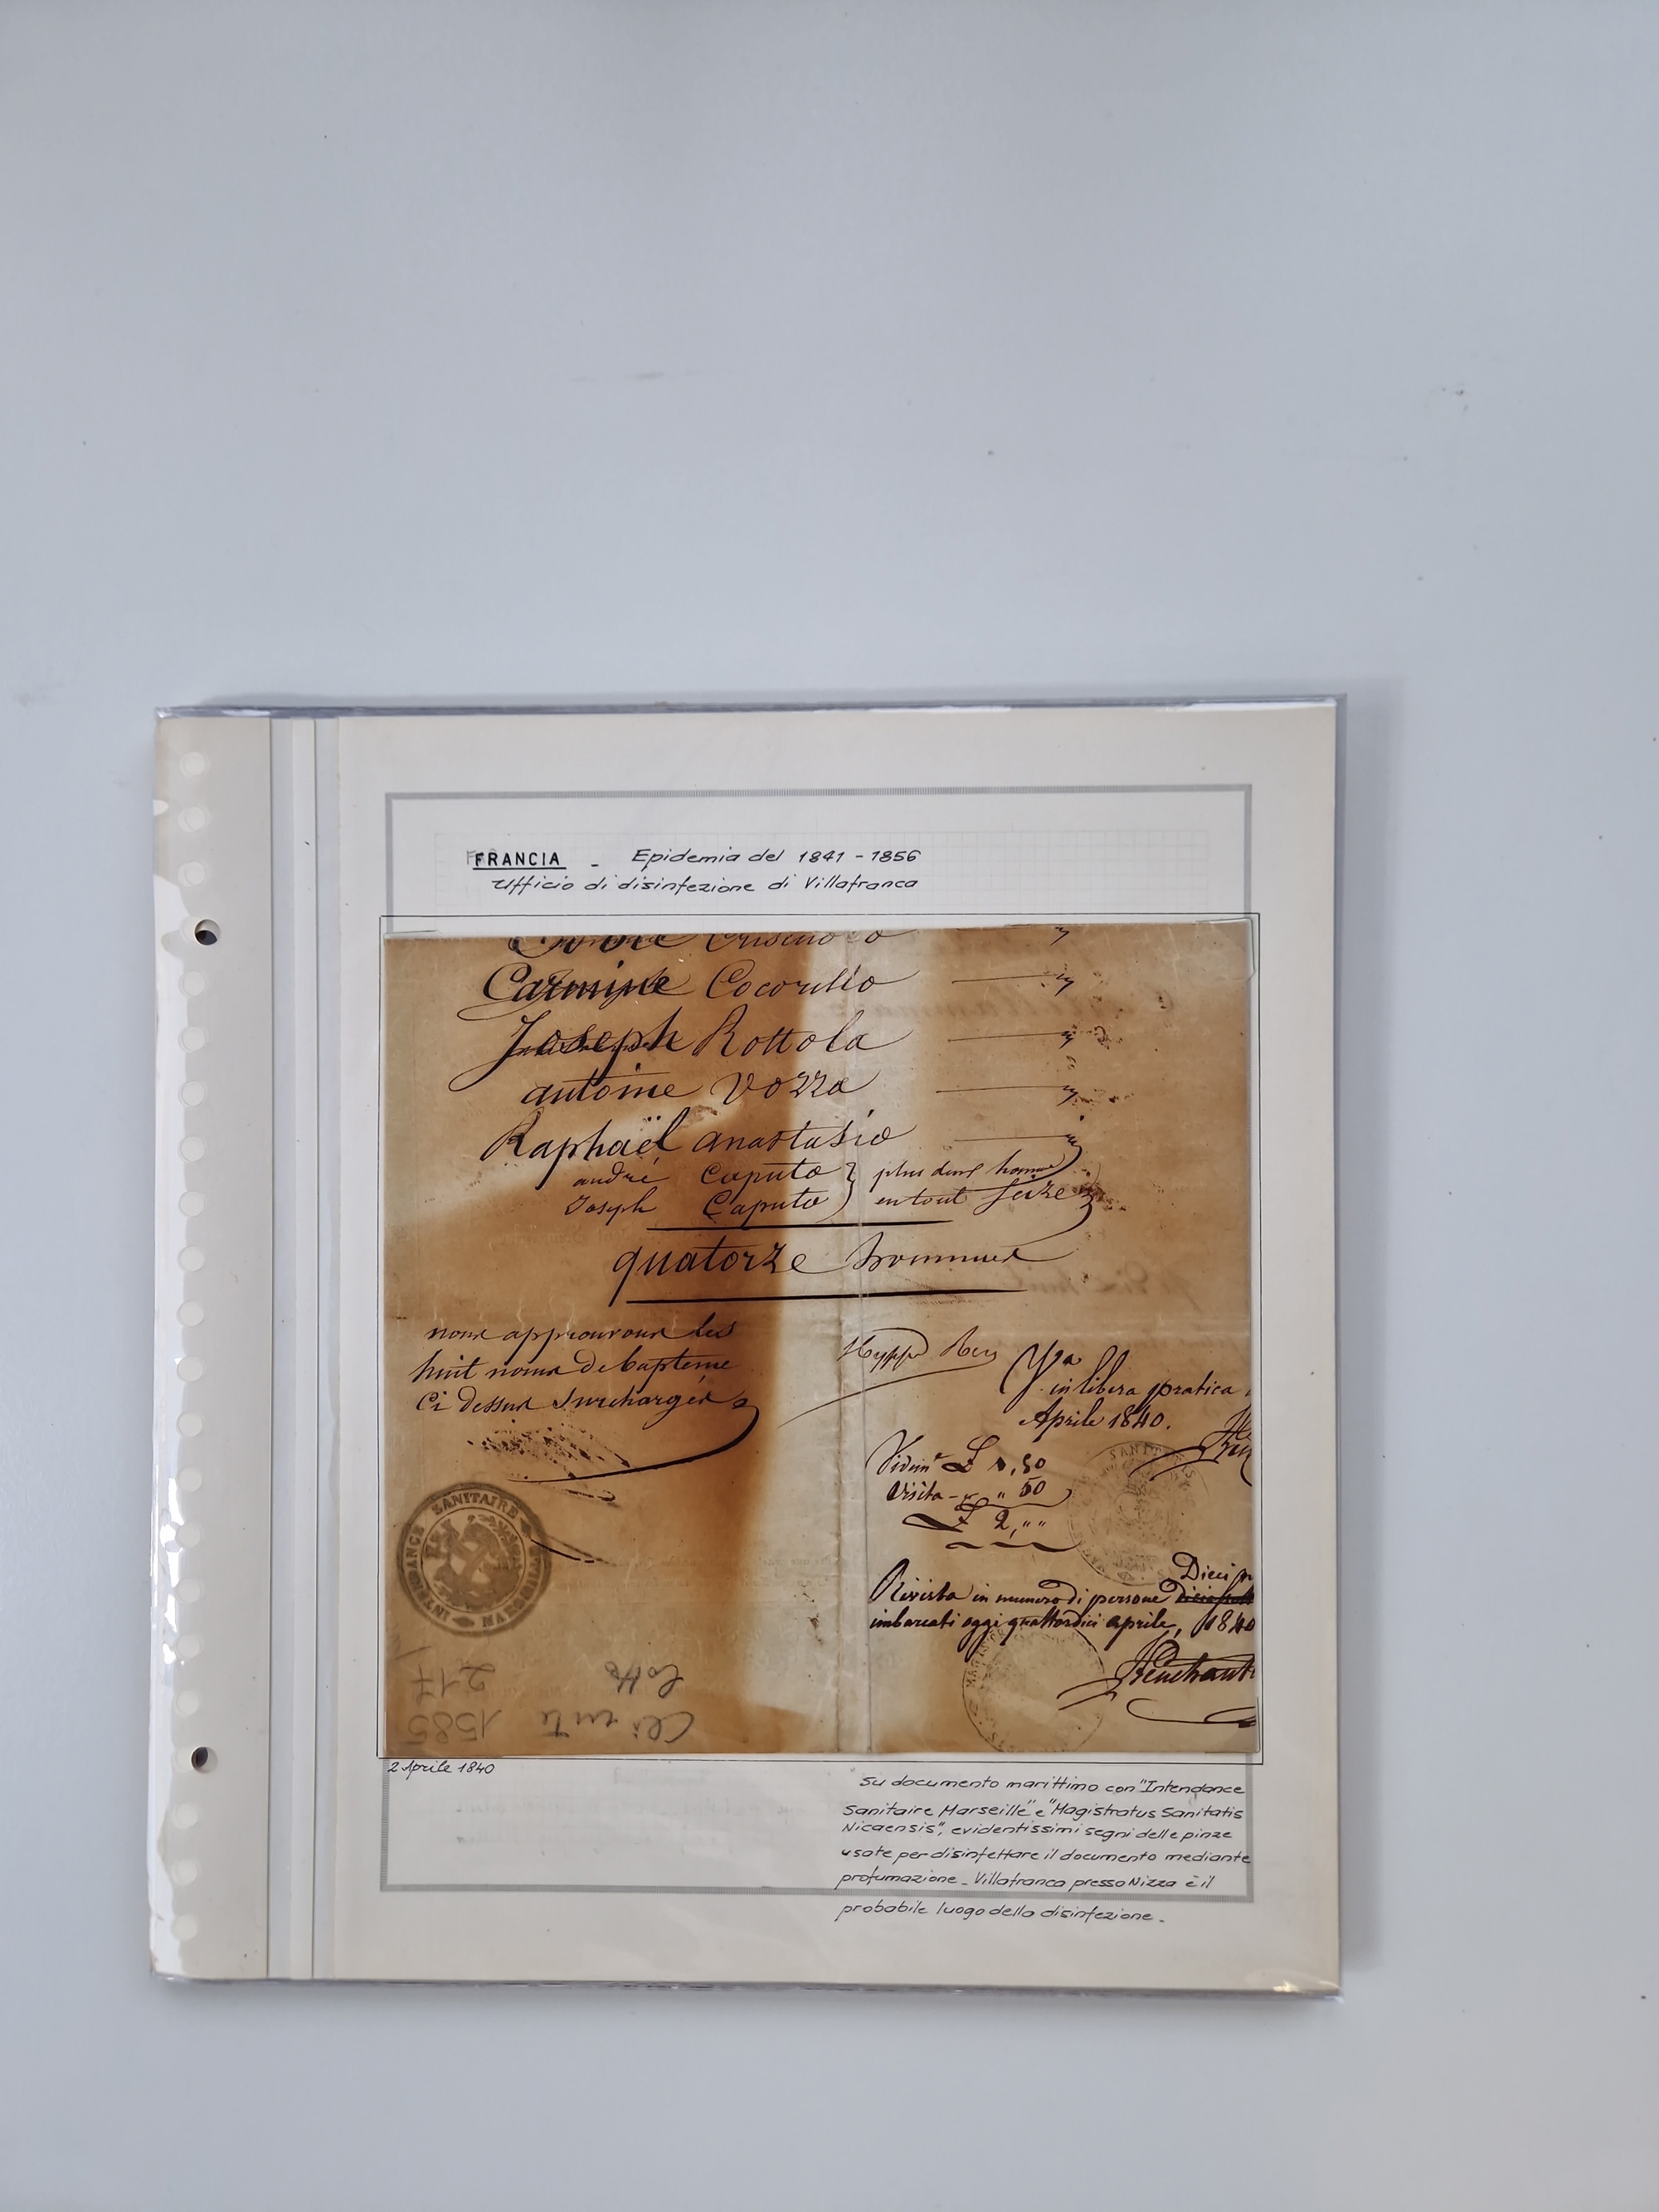 FRANCIA - Epidemia del 1841 - 1856
Ufficio di disinfezione di Villafranca
Carmine Cocorullo
Joseph Rottola
antoine Vozza
Raphaël anastasio
andré Caputo } plus deux hommes
Joseph Caputo } en tout seize
quatorze hommes
nous approuvons les
huit noms de bapteme
Ci dessus Surchargés
INTENDANCE SANITAIRE MARSEILLE
in libera pratica
Aprile 1840.
£ 1,50
Visita - " " 50
£ 2, " "
SANITATIS
Dieci
Rivista in numero di persone
imbarcati oggi quattordici aprile, 1840
Cliente 1585
Lotto 217
2 Aprile 1840
Su documento marittimo con "Intendance
Sanitaire Marseille" e "Magistratus Sanitatis
Nicaensis", evidentissimi segni delle pinze
usate per disinfettare il documento mediante
profumazione - Villafranca presso Nizza è il
probabile luogo della disinfezione -